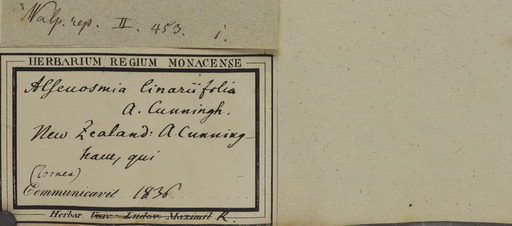 Walp. rep. II. 453. i.
HERBARIUM REGIUM MONACENSE
Alseuosmia linariifolia
A. Cunningh.
New Zealand: A. Cunning-
ham, qui
(Cornea)
Communicavit 1836
Herbar. Univ. Ludov. Maximil R.